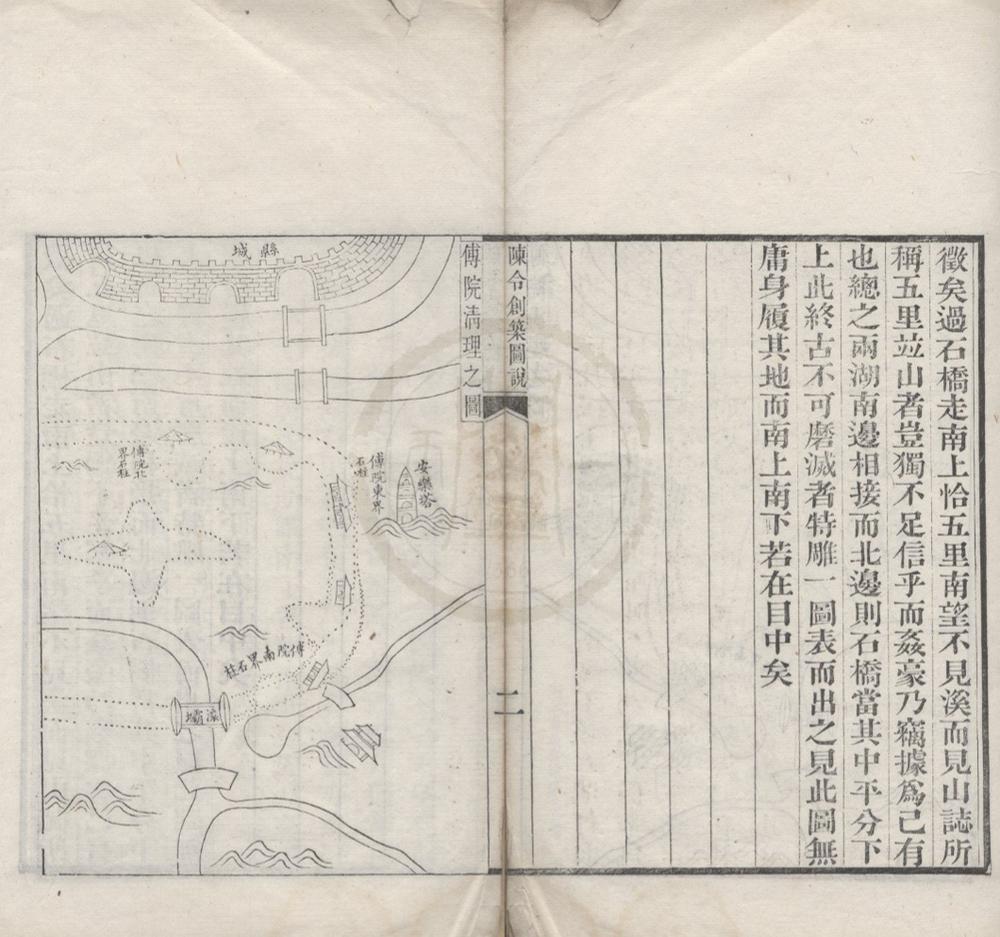 徵矣過石橋走南上恰五里南望不見溪而見山誌所
稱五里竝山者豈獨不足信乎而姦豪乃竊據爲己有
也總之兩湖南邊相接而北邊則石橋當其中平分下
上此終古不可磨滅者特雕一圖表而出之見此圖無
庸身履其地而南上南下若在目中矣
陳令創築圖說
二
傅院清理之圖
縣城
安樂塔
傅院東界
石柱
傅院北
界石柱
傅院南界石柱
滾壩